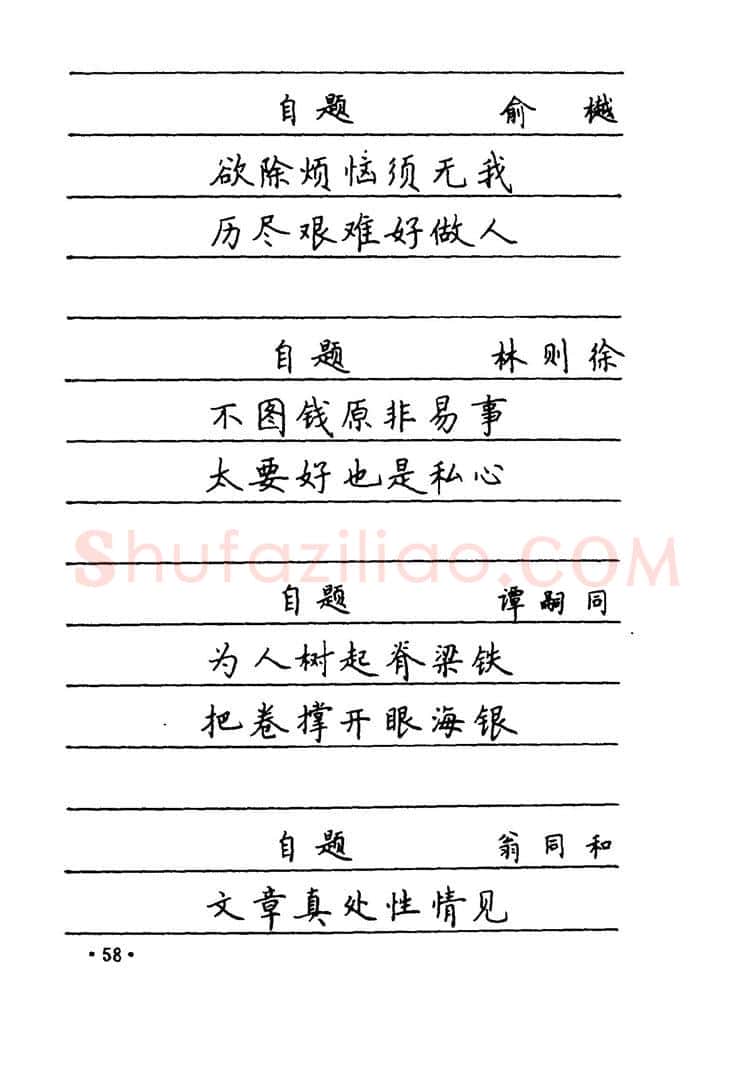 自题 俞樾
欲除烦恼须无我
历尽艰难好做人
自题 林则徐
不图钱原非易事
太要好也是私心
ShufaziliaO.COM
自题 谭嗣同
为人树起脊梁铁
把卷撑开眼海银
自题 翁同和
文章真处性情见
·58·